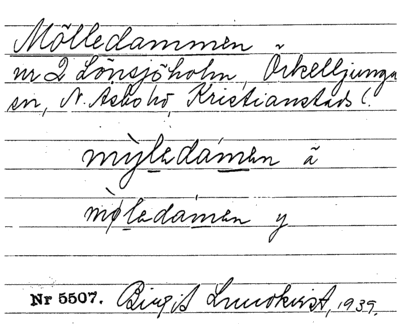 Mölledammen
nr 2 Lönsjöholm, Örkelljunga
sn, N. Asbo hd, Kristianstads l.
mỳledámen ã
mø̀ledámen y
Nr 5507. Birgit Lundkvist, 1939.